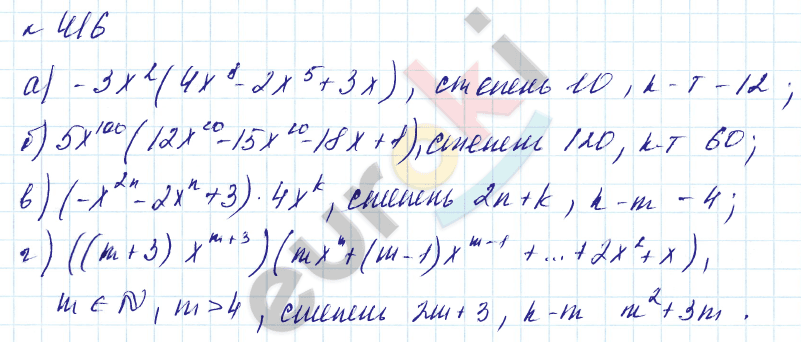 № 416
а) -3x²(4x⁸-2x⁵+3x), степень 10, к-т -12;
б) 5x¹⁰⁰(12x²⁰-15x¹⁰-18x+1), степень 120, к-т 60;
в) (-x²ⁿ-2xⁿ+3)·4xᵏ, степень 2n+k, к-т -4;
г) ((m+3) x^(m+3))(mx^m+(m-1)x^(m-1) +...+2x²+x),
m∈N, m>4, степень 2m+3, к-т m²+3m.
euroki